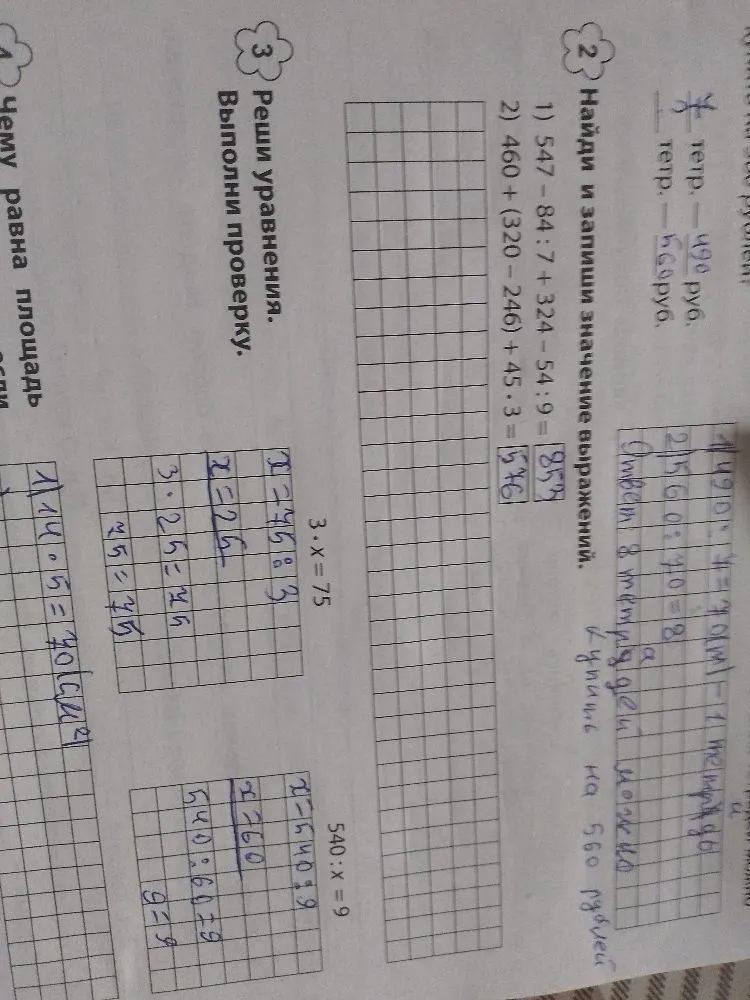 7 тетр. — 490 руб.
тетр. — 560 руб.
1) 490 : 7 = 70 (м) — 1 тетрада
2) 560 : 70 = 8
Ответ 8 тетрадей можно
купить на 560 рублей
2 Найди и запиши значение выражений.
1) 547 – 84 : 7 + 324 – 54 : 9 = 853
2) 460 + (320 – 246) + 45 · 3 = 576
3 Реши уравнения.
Выполни проверку.
3 · x = 75
x = 75 : 3
x = 25
3 · 25 = 75
75 = 75
540 : x = 9
x = 540 : 9
x = 60
540 : 60 = 9
9 = 9
Чему равна площадь
1) 14 · 5 = 70 (см²)